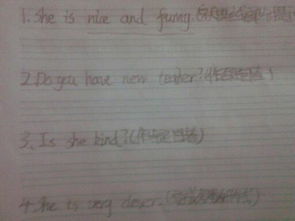 1. She is nice and funny.
2. Do you have new teacher?(作否定回答)
3. Is she kind?(作肯定回答)
4. She is very clever.